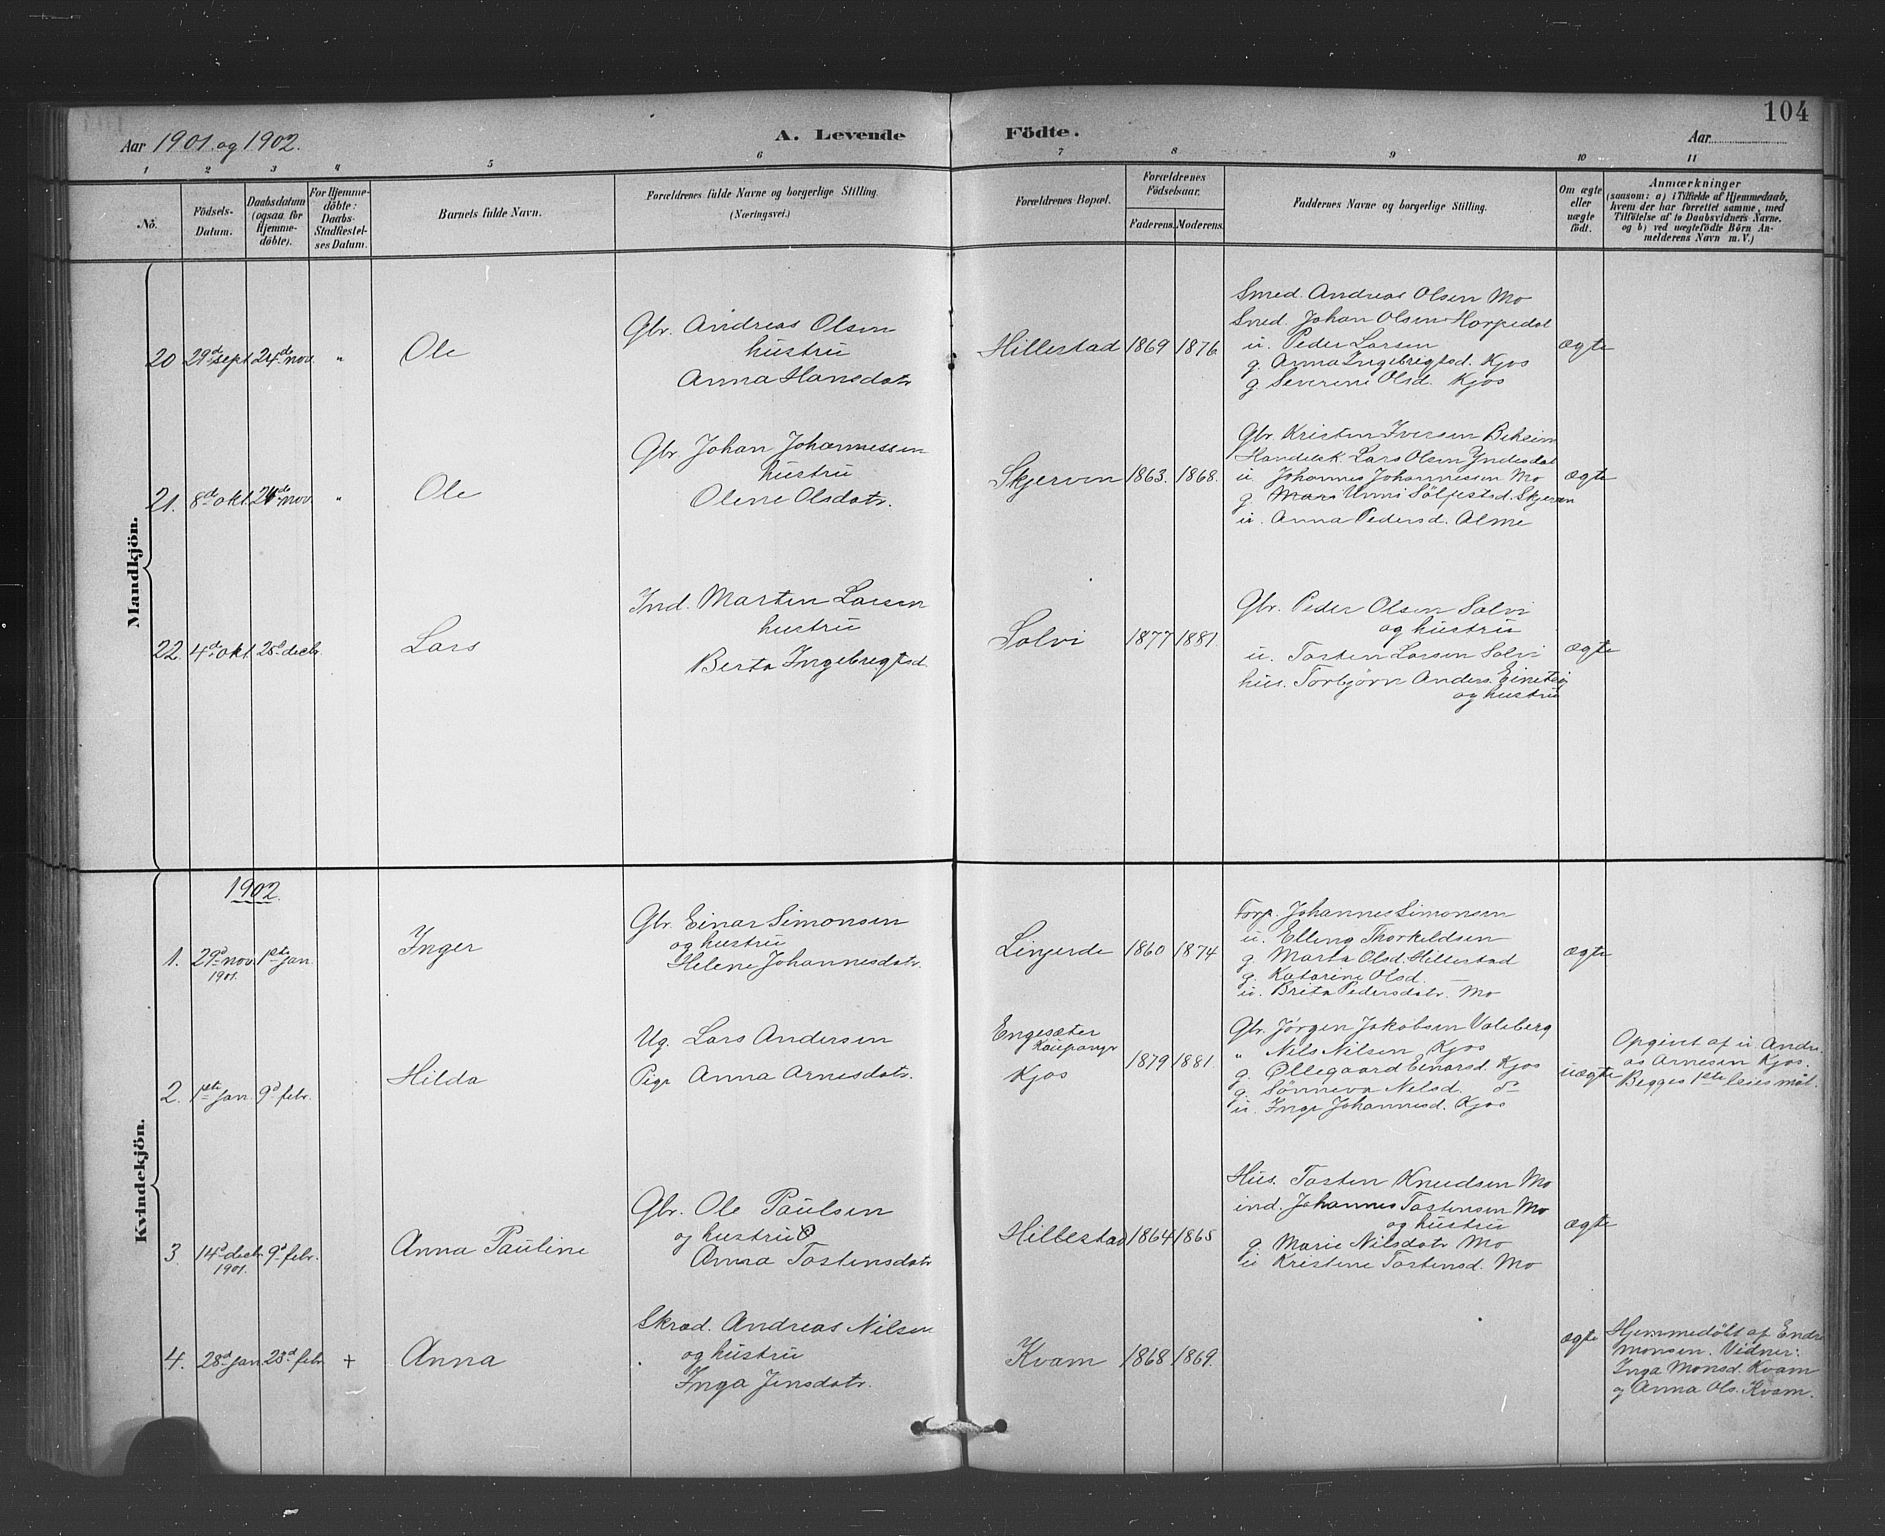 104
Aar 1901 og 1902.
A. Levende Födte.
Aar
1 2 3 4 5 6 7 8 9 10 11
No.
Födsels-Datum.
Daabsdatum (ogsaa for Hjemme-döbte).
For Hjemme-döbte: Daabs-Stadfæstel-ses Datum.
Barnets fulde Navn.
Forældrenes fulde Navne og borgerlige Stilling.
(Næringsvei.)
Forældrenes Bopæl.
Forældrenes Födselsaar.
Faderens. Moderens.
Faddernes Navne og borgerlige Stilling.
Om ægte eller uægte födt.
Anmærkninger
(saasom: a) i Tilfælde af Hjemmedaab, hvem der har forrettet samme, med Tilföielse af to Daabsvidners Navne, og b) ved uægtefödte Börn An-melderens Navn m. V.)
Mandkjön.
20 29d sept. 24de nov. "
Ole
Gbr. Andreas Olsen
hustru
Anna Hansdatr
Hillestad 1869 1876
Smed. Andreas Olsen Mo
Smed. Johan Olsen Horpedal
u. Peder Larsen
g. Anna Ingebrigtsd. Kjos
g. Severine Olsd. Kjos
ægte
21. 8de okt. 24de nov. "
Ole
Gbr. Johan Johannessen
hustru
Olene Olsdatr.
Skjerven 1863. 1868.
Gbr. Kristen Iversen Beheim
Handelsk. Lars Olsen Yndesdal
u. Johannes Johannessen Mo
g. Unni Sölfestsd. Skjerven
u. Anna Pedersd. Alme
ægte
22. 4de okt. 25d decb.
Lars
Ind. Marten Larsen
hustru
Berta Ingebregtsd.
Solvi 1877 1881.
Gbr. Peder Olsen Solvi
og hustru
u. Tosten Larsen Solvi
hus. Torbjörn Anders.
og hustru
ægte
Kvindekjön.
1902.
1. 29d nov. 1901. 1ste jan.
Inger
Gbr. Einar Simonsen
og hustru
Helene Johannesdatr.
Linjerde 1860 1874
Forp. Johannes Simonsen
u. Elling Thorkildsen
g. Marta Olsd. Hillestad
g. Katarine Olsd. —
u. Brita Pedersdatr. Mo
ægte
2. 1ste jan. 9d febr.
Hilda
Ug. Lars Andersen
Pige Anna Arnesdatr.
Engesæter
Kaupanger
Kjos
1879 1881.
Gbr. Jörgen Jakobsen Valeberg
" Nils Nilsen Kjos
g. Øllegaard Einarsd. Kjos
g. Sönneva Nilsd. do
u. Inge Johannesd. Kjos
uægte
Opgivet af u. Andre-
as Arnesen Kjos.
Begges 1ste leiesmål.
3. 14d decb. 1901. 9d febr.
Anna Pauline
Gbr. Ole Paulsen
og hustru
Anna Tostensdatr
Hillestad 1864 1865
Hus. Tosten Knudsen Mo
ind. Johannes Tostensen Mo
og hustru
g. Marie Nilsdatr Mo
u Kristine Tostensd. Mo
ægte
4. 28d jan. 23d febr. +
Anna
Skrad. Andreas Nilsen
og hustru
Inga Jensdatr.
Kvam 1868 1869.
ægte
Hjemmedöbt af Endre
Monsen. Vidner:
Inga Monsd. Kvam
og Anna Ols. Kvam.